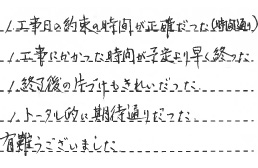 1. 工事日の約束の時間が正確だった(時間通り)
1. 工事にかかった時間が予定より早く終った
1. 終了後の片づけもきれいだった
1. トータル的に期待通りだった
有難うございました